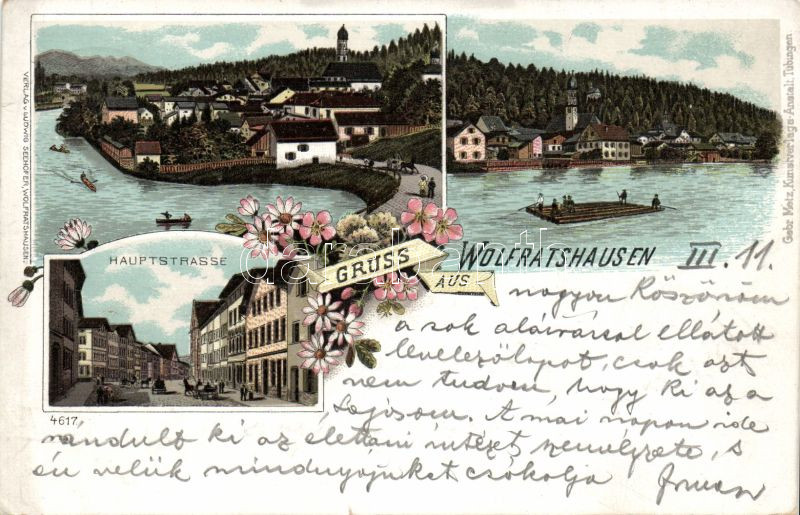 VERLAG v. LUDWIG SEEHOFER, WOLFRATSHAUSEN.
Gebr. Metz, Kunstverlags-Anstalt, Tübingen
HAUPTSTRASSE
GRUSS
AUS
WOLFRATSHAUSEN
darabanth
4617.
III. 11.
nagyon köszönöm
a sok aláirással ellátott
levelezőlapot, csak azt
nem tudom, hogy ki az a
Lajosom. A mai napon ide
rándult ki az élettani intézet személyzete, s
én velük mindnyájukat csókolja